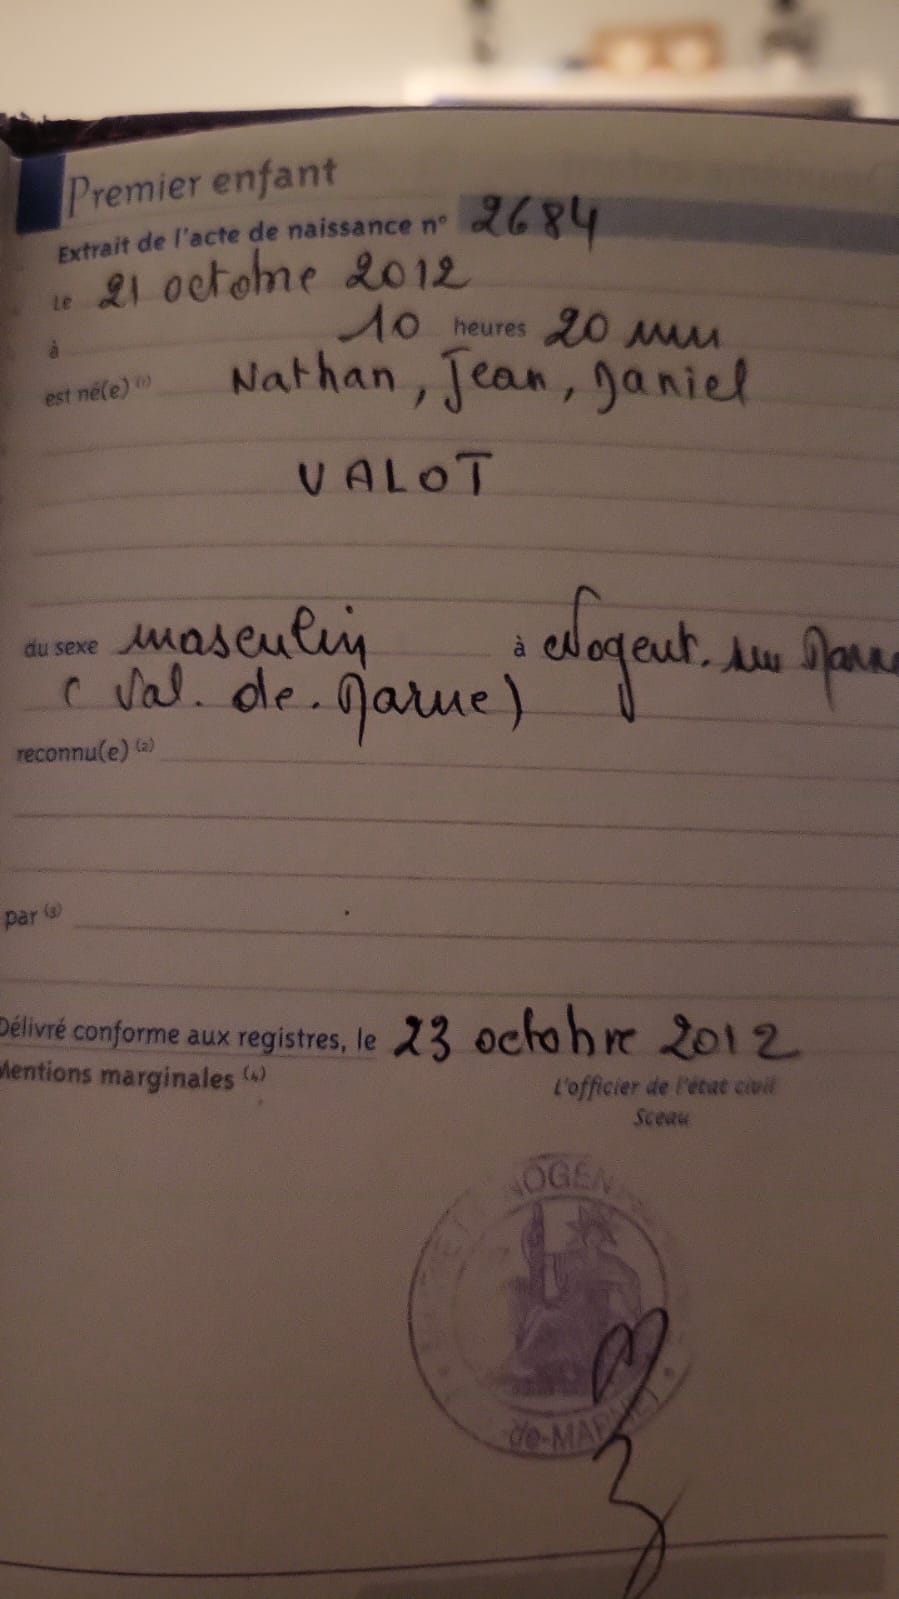 Premier enfant
Extrait de l'acte de naissance n° 2684
Le 21 octobre 2012
à 10 heures 20 min
est né(e) (1) Nathan, Jean, Daniel
VALOT
du sexe masculin à Nogent. sur Marne
(Val. de. Marne)
reconnu(e) (2)
par (3)
Délivré conforme aux registres, le 23 octobre 2012
Mentions marginales (4)
L'officier de l'état civil
Sceau
NOGEN
de-MARNE